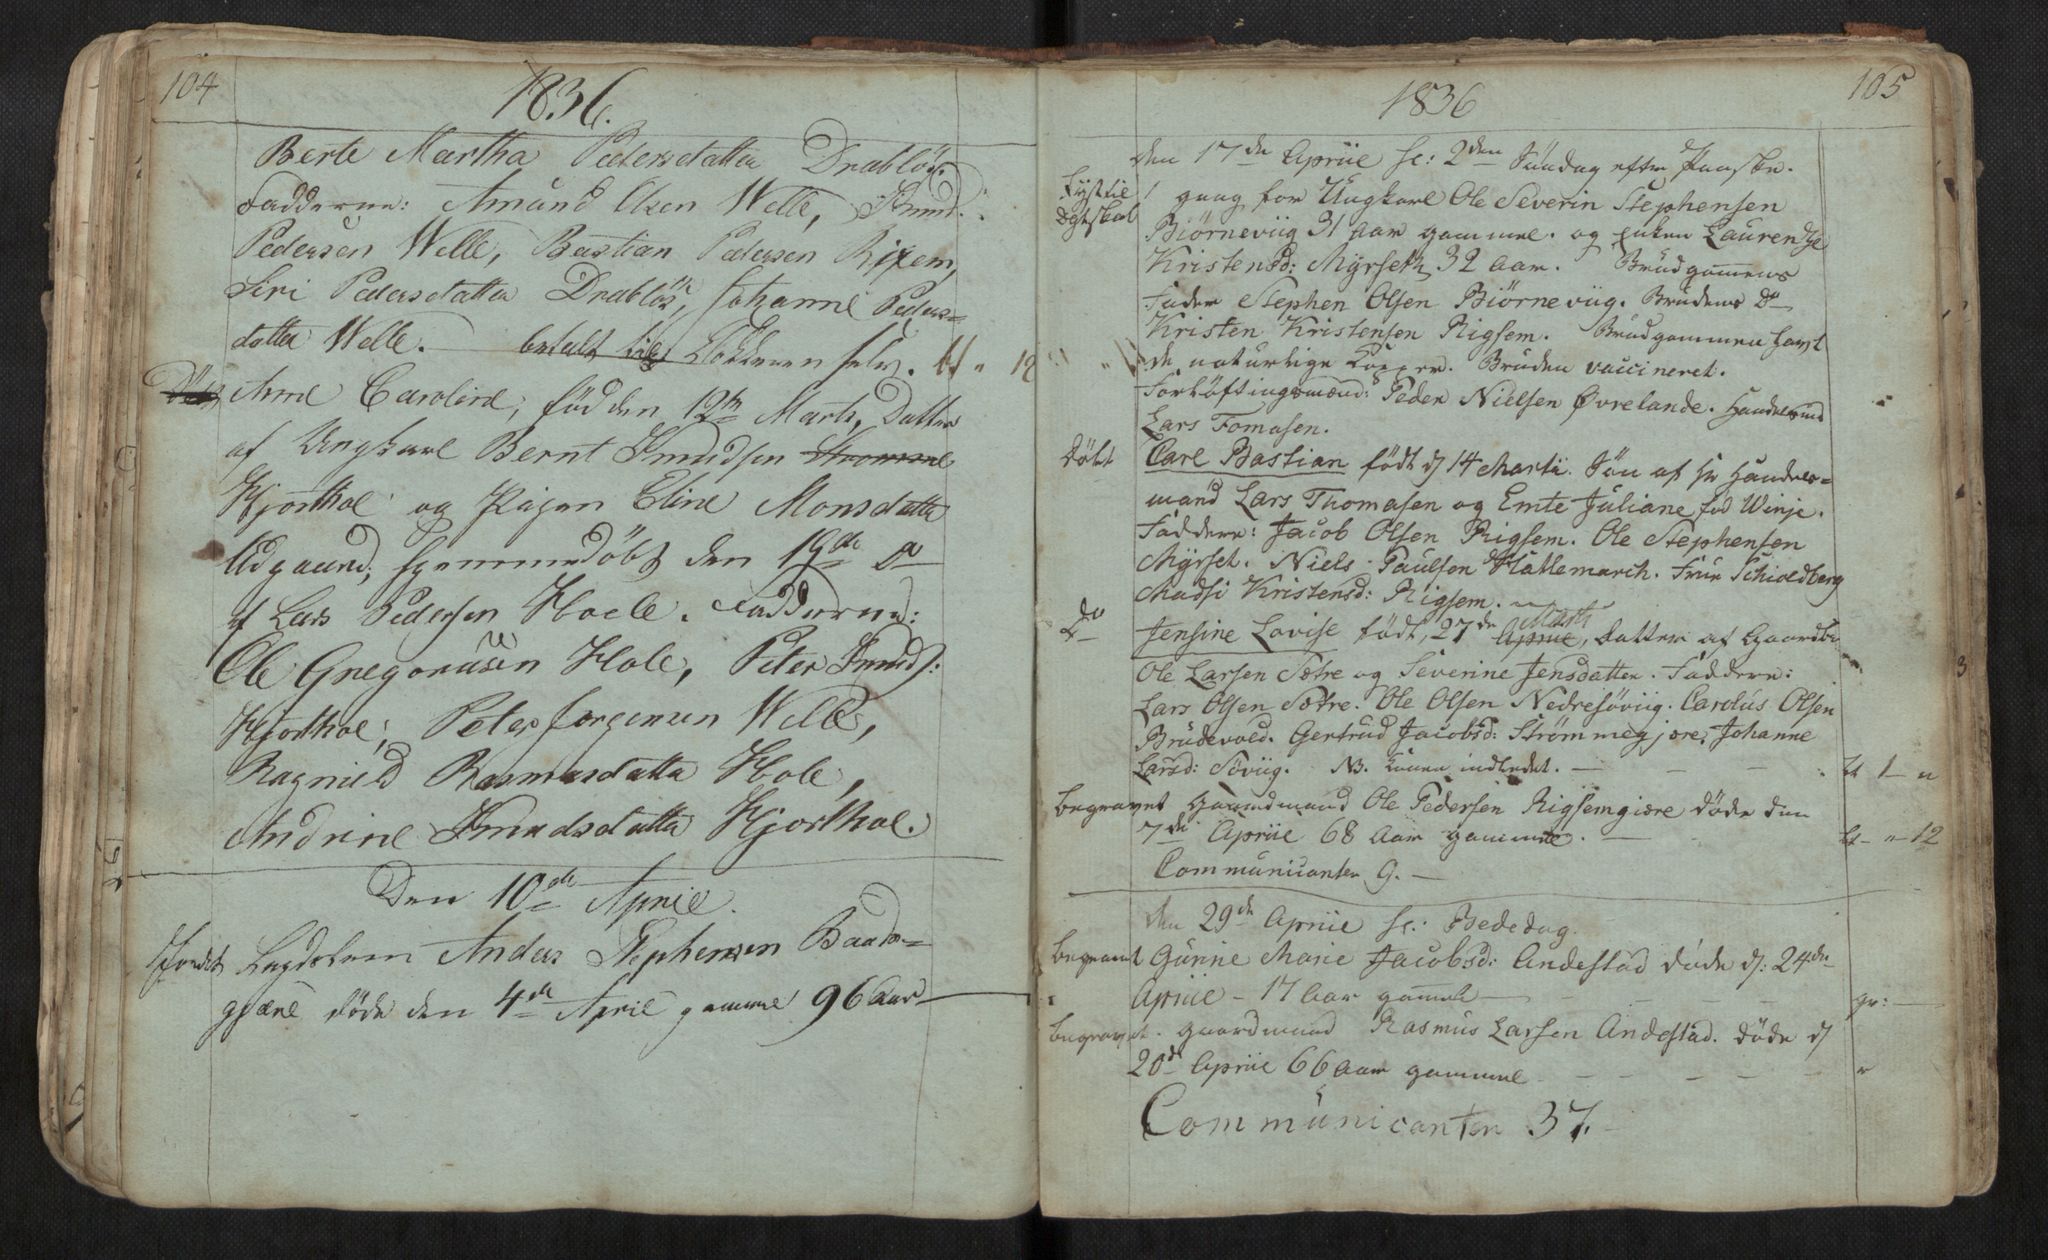 104
1836.
Berte Martha Pedersdatter Drabløs.
Fadderne: Amund Olsen Welle, Knud
Pedersen Welle, Bastian Pedersen Rixem,
Siri Pedersdatter Drabløs, Johanne Peders=
datter Welle. betalt til Klokkeren selv. " 12
Døbt, Ane Caroline, fød den 12te Marts, Datter
af Ungkarl Bernt Knudsen Strømme
Hjorthol og Pigen Eline Monsdatter
Ødgaard, hjemmedøbt den 19de do
af Lars Pedersen Hoele. Fadderne:
Ole Gregoriusen Hole, Peter Knuds:
Hjorthol, Peter Jørgensen Welle,
Ragnild Rasmusdatter Hole,
Andrine Knudsdatter Hjorthol.
Den 10de April.
Jordet Lægdslem Anders Stephensen Baads=
gjære døde den 4de April gammel 96 Aar
105
1836
den 17de Apriil sc: 2den Søndag efter Paaske.
Lyst til 1 gang for Ungkarl Ole Severin Stephensen
Egteskab Biørneviig 31 Aar gammel. og Enken Laurendze
Kristensd: Myrseth 32 Aar. Brudgomens
Fader Stephen Olsen Biørneviig. Brudens Do
Kristen Kristensen Rigsem. Brudgommen havt
de naturlige Kopper. Bruden vaccineret.
Forløftingsmænd: Peder Nielsen Øvrelande. Handelsmd
Lars Tomasen.
Døbt Carl Bastian født d 14 Marti. Søn af Hr Handels=
mand Lars Thomasen og Emte Juliane fød Winje.
Faddere: Jacob Olsen Rigsem. Ole Stephensen
Myrset. Niels Paulsen Hatlemarch. Frue Schioldborg
Madsi Kristensd: Rigsem.
Do Jensine Lovise født, 27de Apriil Marti, Datter af Gaardbr
Ole Larsen Sætre og Severine Jensdatter. Faddere:
Lars Olsen Sætre. Ole Olsen Nedresøviig. Carolus Olsen
Brudevold. Gertrud Jacobsd: Strømmegjære. Johanne
Larsd: Søviig. NB. Konen indledet. — bt 1 — "
begravet Gaardmand Ole Pedersen Rigsemgiære døde den
7de Apriil 68 Aar gammel. — bt - " - 12
Communicanter 9. —
den 29de Apriil sc: Bededag.
begravet Gunne Marie Jacobsd: Andestad døde d: 24de
Apriil - 17 Aar gammel — gr: —
begravet. Gaardmand Rasmus Larsen Andestad. døde d
20de Apriil 66 Aar gammel
Communicanter 37.